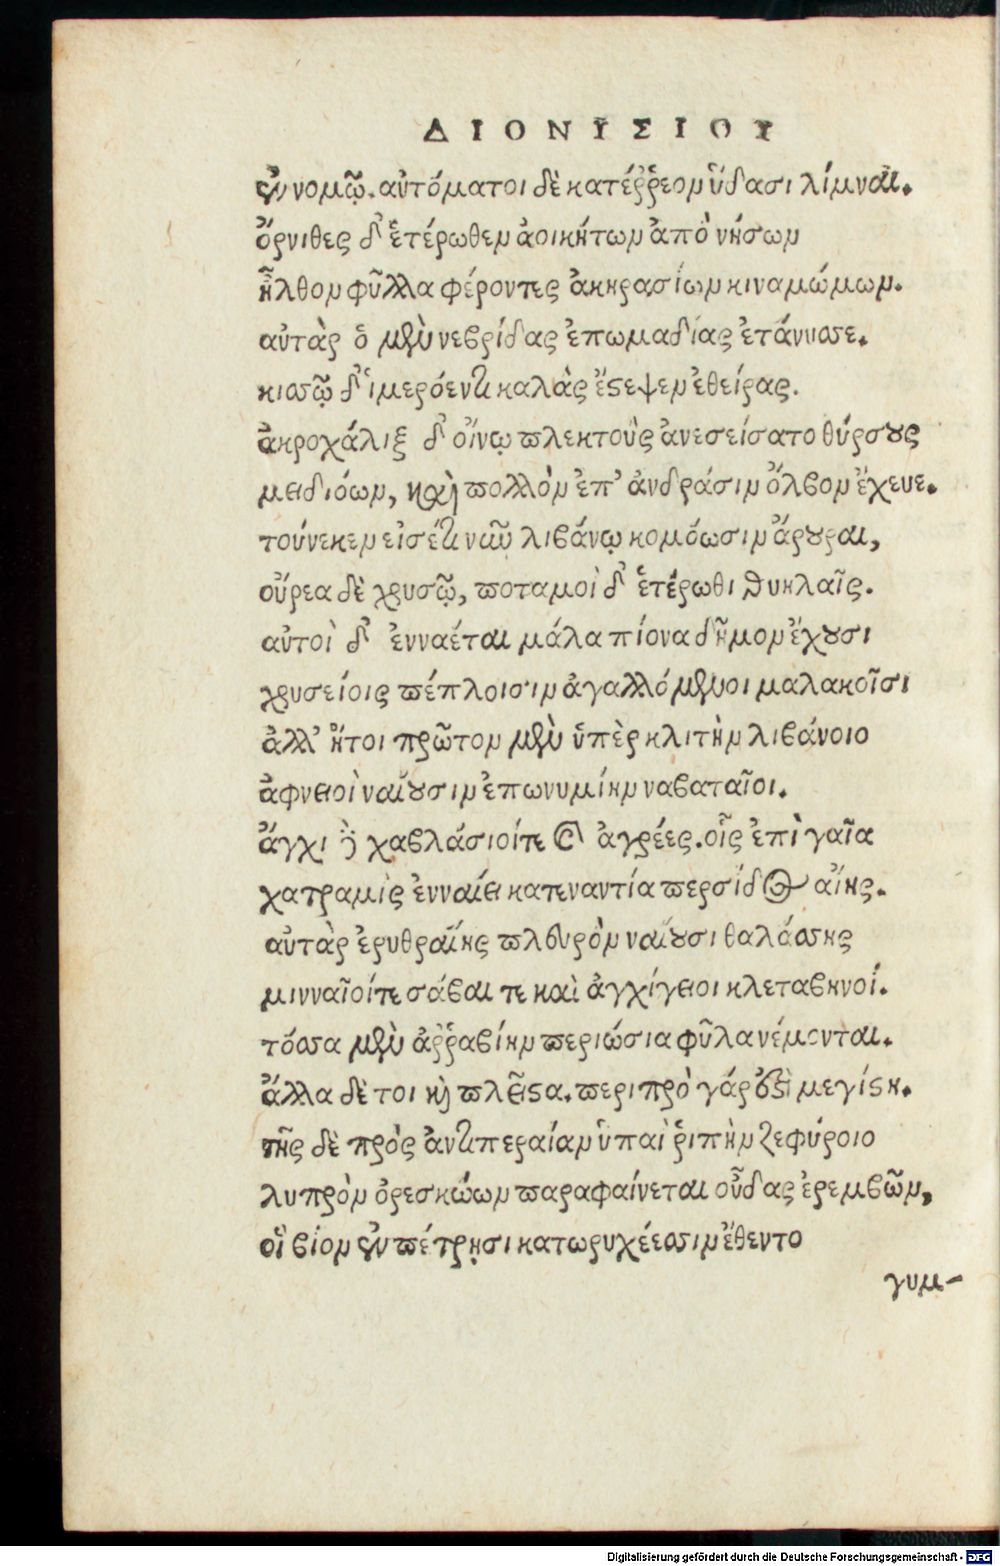 ΔΙΟΝΥΣΙΟΥ
ἐν νομῷ. αὐτόματοι δὲ κατέῤῥεον ὕδασι λίμναι.
ὄρνιθες δ' ἑτέρωθεν ἀοικήτων ἀπὸ νήσων
ἦλθον φῦλλα φέροντες ἀκηρασίων κιναμώμων.
αὐτὰρ ὁ μὲν νεβρίδας ἐπωμαδίας ἐτάνυσσε.
κισσῷ δ' ἱμερόεντι καλὰς ἔστεψεν ἐθείρας.
ἀκροχάλιξ δ' οἴνῳ πλεκτοὺς ἀνεσείσατο θύρσους
μειδιόων, καὶ πολλὸν ἐπ' ἀνδράσιν ὄλβον ἔχευε.
τούνεκεν εἰσέτι νῦν λιβάνῳ κομόωσιν ἄρουραι,
οὔρεα δὲ χρυσῷ, ποταμοὶ δ' ἑτέρωθι θυηλαῖς.
αὐτοὶ δ' ἐνναέται μάλα πίονα δῆμον ἔχουσι
χρυσείοις πέπλοισιν ἀγαλλόμενοι μαλακοῖσι
ἀλλ' ἤτοι πρῶτον μὲν ὑπὲρ κλιτὴν λιβάνοιο
ἀφνειοὶ ναίουσιν ἐπωνυμίην ναβαταῖοι.
ἄγχι δὲ χαβλάσιοίτε καὶ ἀγρέες. οἷς ἐπὶ γαῖα
χατραμὶς ἐνναίει κατεναντία περσίδος αἴης.
αὐτὰρ ἐρυθραίης πλευρὸν ναίουσι θαλάσσης
μινναῖοίτε σάβαι τε καὶ ἀγχίγειοι κλεταβηνοί.
τόσσα μὲν ἀῤῥαβίην περιώσια φῦλα νέμονται.
ἄλλα δὲ τοι καὶ πλεῖστα. περιπρὸ γάρ ἐστι μεγίστη.
τῆς δὲ πρὸς ἀντιπεραίαν ὑπαὶ ῥιπὴν ζεφύροιο
λυπρὸν ὀρεσκώων παραφαίνεται οὖδας ἐρεμβῶν,
οἳ βίον ἐν πέτρῃσι κατωρυχέεσσιν ἔθεντο
γυμ-
Digitalisierung gefördert durch die Deutsche Forschungsgemeinschaft - DFG